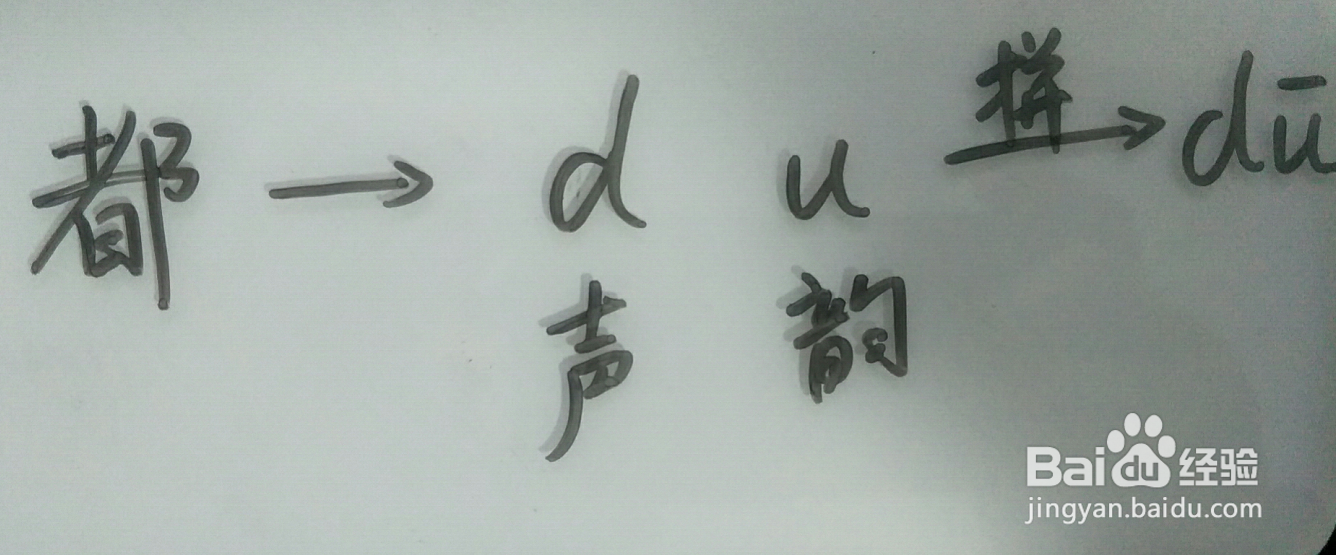 都 → d u 拼→ dū
声 韵
Bai du 经验
jingyan.baidu.com